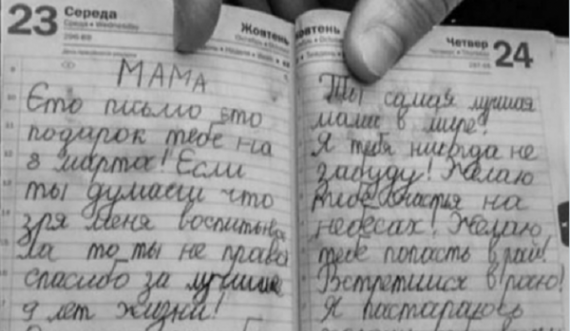 23 Середа Жовтень
Среда • Wednesday
МАМА
Єто письмо єто
подарок тебе на
8 марта! Если
ты думаєш что
зря меня воспитыва
ла то ты не права
спасибо за лучшие
9 лет жизни!
Четвер 24
Ты самая лучшая
мама в мире!
Я тебя никогда не
забуду! Желаю
тебе счастья на
небесах! Желаю
тебе попасть в рай!
Встретимся в раю!
Я постараюсь